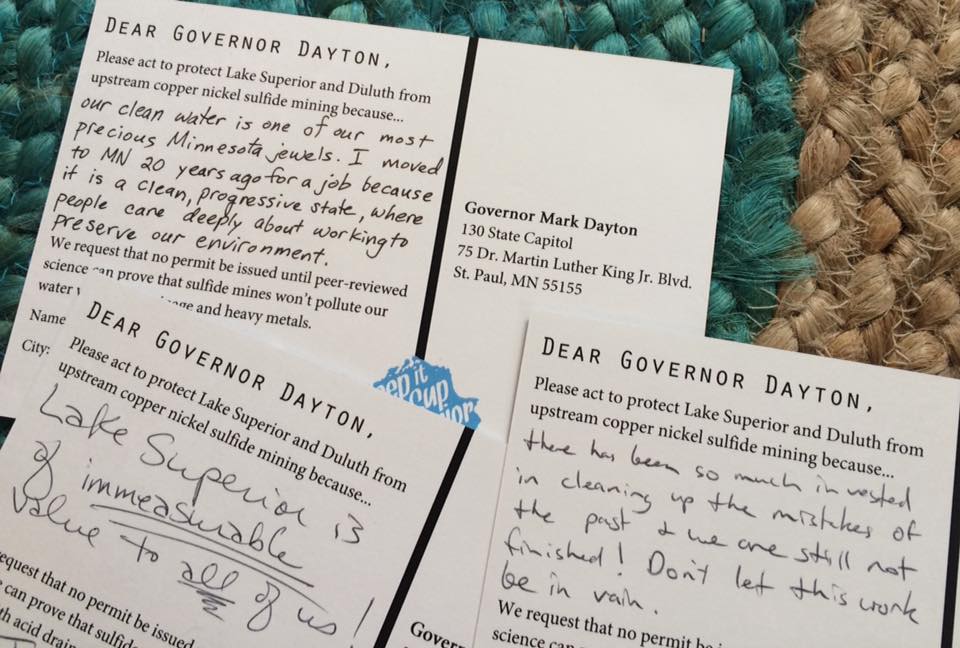 DEAR GOVERNOR DAYTON,
Please act to protect Lake Superior and Duluth from
upstream copper nickel sulfide mining because...
our clean water is one of our most
precious Minnesota jewels. I moved
to MN 20 years ago for a job because
it is a clean, progressive state, where
people care deeply about working to
preserve our environment.
We request that no permit be issued until peer-reviewed
science can prove that sulfide mines won't pollute our
water
and heavy metals.
Name
City:
Governor Mark Dayton
130 State Capitol
75 Dr. Martin Luther King Jr. Blvd.
St. Paul, MN 55155
DEAR GOVERNOR DAYTON,
Please act to protect Lake Superior and Duluth from
upstream copper nickel sulfide mining because...
Lake Superior is
of immeasurable
value to all of us!
equest that no permit be issued
e can prove that sulfide
th acid drain
Gover
DEAR GOVERNOR DAYTON,
Please act to protect Lake Superior and Duluth from
upstream copper nickel sulfide mining because...
there has been so much invested
in cleaning up the mistakes of
the past & we are still not
finished! Don't let this work
be in vain.
We request that no permit be
science can